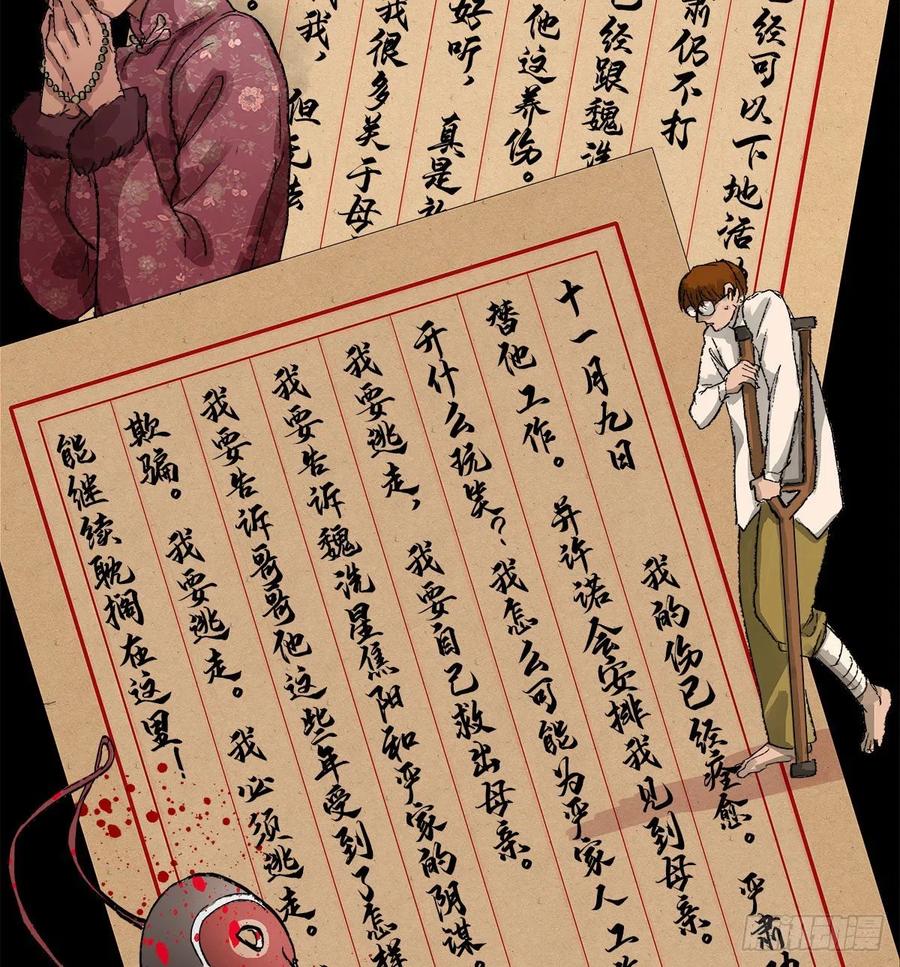 经可以下地活
肃仍不打
经跟魏洗
他这养伤。
好听，真是
我很多关于母
我，但无法
十一月九日 我的伤已经痊愈。乎肃
替他工作。并许诺会安排我见到母亲。
开什么玩笑？我怎么可能为乎家人工
我要逃走，我要自己救出母亲。
我要告诉魏洗星焦阳和乎家的阴谋。
我要告诉哥哥他这些年受到了怎样
欺骗。我要逃走。我必须逃走。
能继续耽搁在这里！